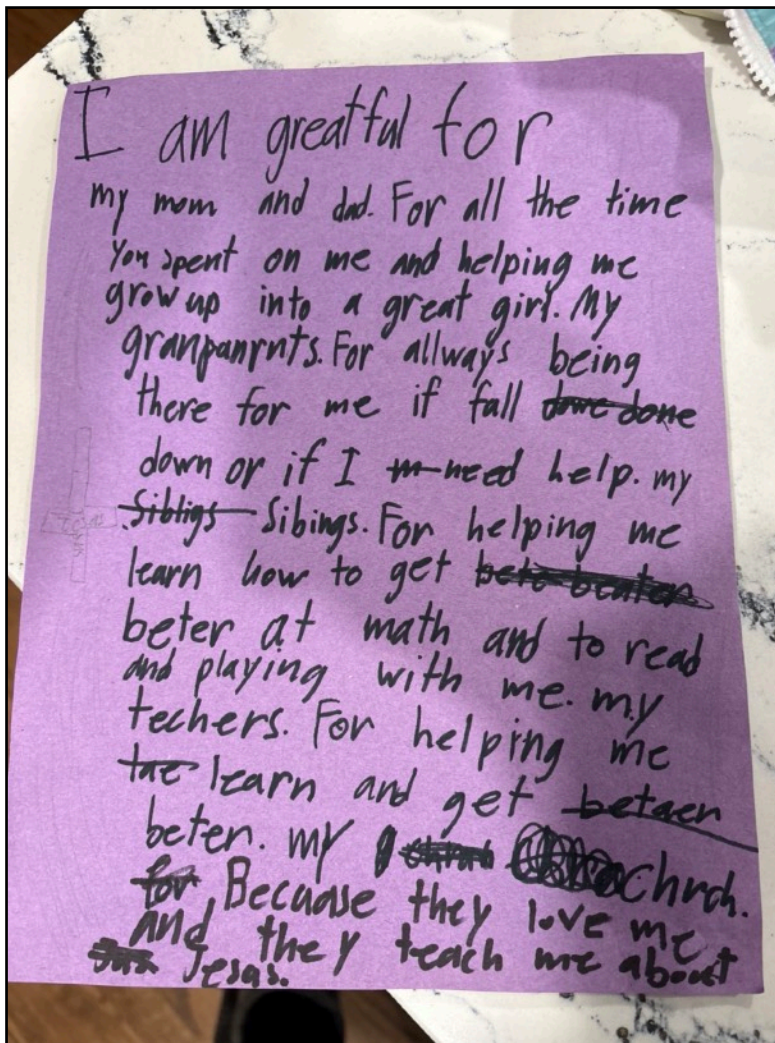 I am greatful for
my mom and dad. For all the time
you spent on me and helping me
grow up into a great girl. My
granpanrnts. For allways being
there for me if fall dowe done
down or if I m need help. my
Sibligs Sibings. For helping me
learn how to get bete beater
beter at math and to read
and playing with me. my
techers. For helping me
tae learn and get betaer
beter. my Chrch.
for Becuase they love me
and they teach me about
Jesas.